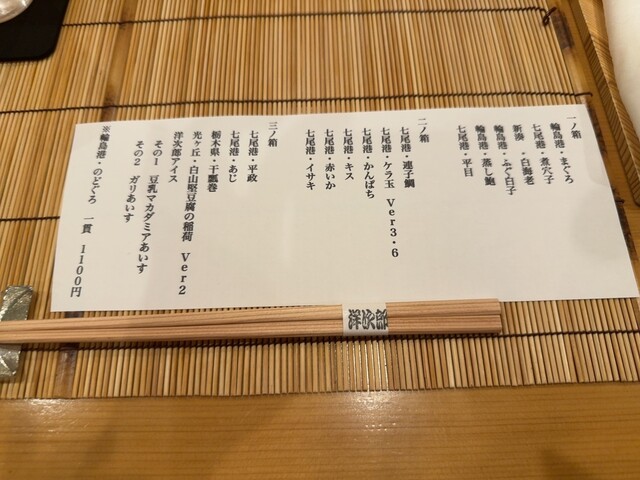 一ノ箱
輪島港・まぐろ
七尾港・煮穴子
新湊・白海老
輪島港・ふぐ白子
輪島港・蒸し鮑
七尾港・平目
二ノ箱
七尾港・連子鯛
七尾港・ケラ玉 Ver3・6
七尾港・かんぱち
七尾港・キス
七尾港・赤いか
七尾港・イサキ
三ノ箱
七尾港・平政
七尾港・あじ
栃木県・干瓢巻
光ヶ丘・白山堅豆腐の稲荷 Ver2
洋次郎アイス
その1 豆乳マカダミアあいす
その2 ガリあいす
※輪島港・のどぐろ 一貫 1100円
洋次郎